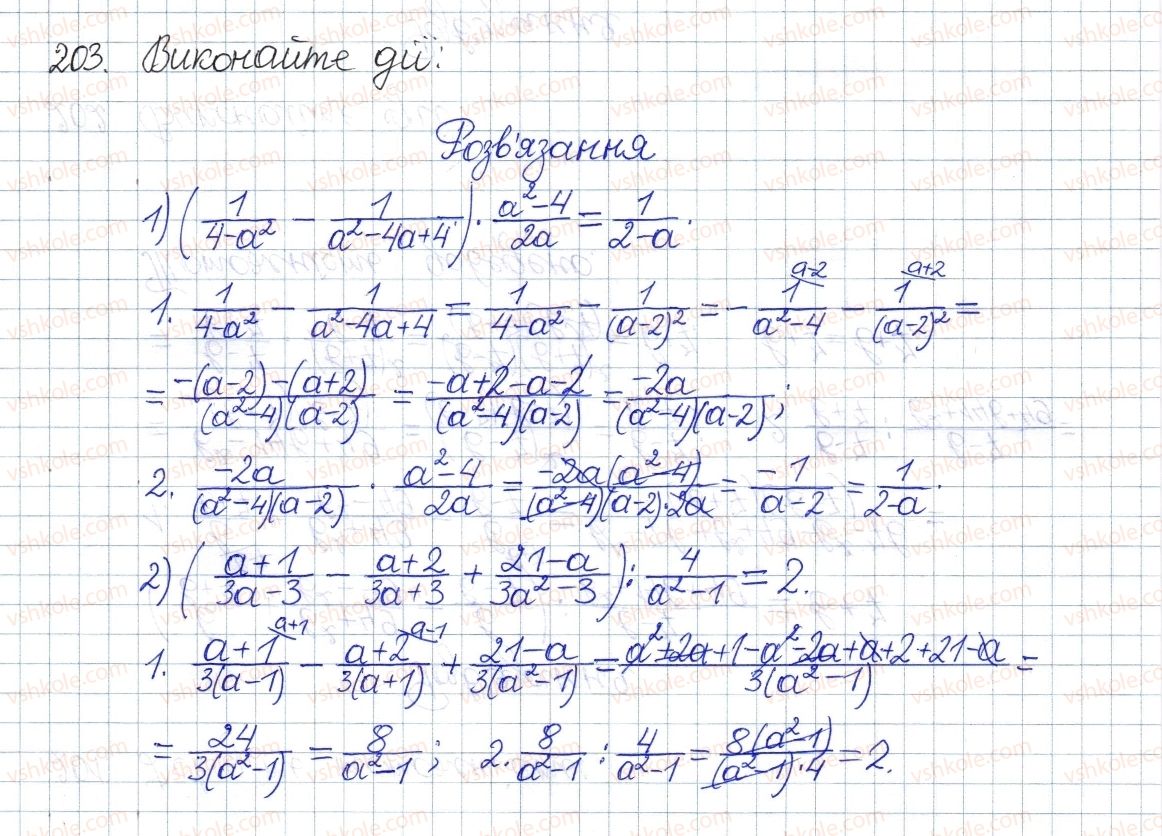 203. Виконайте дії:
Розв'язання
1) (1/(4-a²) - 1/(a²-4a+4)) · (a²-4)/(2a) = 1/(2-a).
1. 1/(4-a²) - 1/(a²-4a+4) = 1/(4-a²) - 1/(a-2)² = - 1/(a²-4) (a-2) - 1/(a-2)² (a+2) =
= (-(a-2)-(a+2))/((a²-4)(a-2)) = (-a+2-a-2)/((a²-4)(a-2)) = (-2a)/((a²-4)(a-2));
2. (-2a)/((a²-4)(a-2)) · (a²-4)/(2a) = (-2a(a²-4))/((a²-4)(a-2)·2a) = (-1)/(a-2) = 1/(2-a).
2) ((a+1)/(3a-3) - (a+2)/(3a+3) + (21-a)/(3a²-3)) : 4/(a²-1) = 2.
1. (a+1)/(3(a-1)) (a+1) - (a+2)/(3(a+1)) (a-1) + (21-a)/(3(a²-1)) = (a²+2a+1-a²-2a+a+2+21-a)/(3(a²-1)) =
= 24/(3(a²-1)) = 8/(a²-1); 2. 8/(a²-1) : 4/(a²-1) = (8(a²-1))/((a²-1)·4) = 2.
vshkole.com